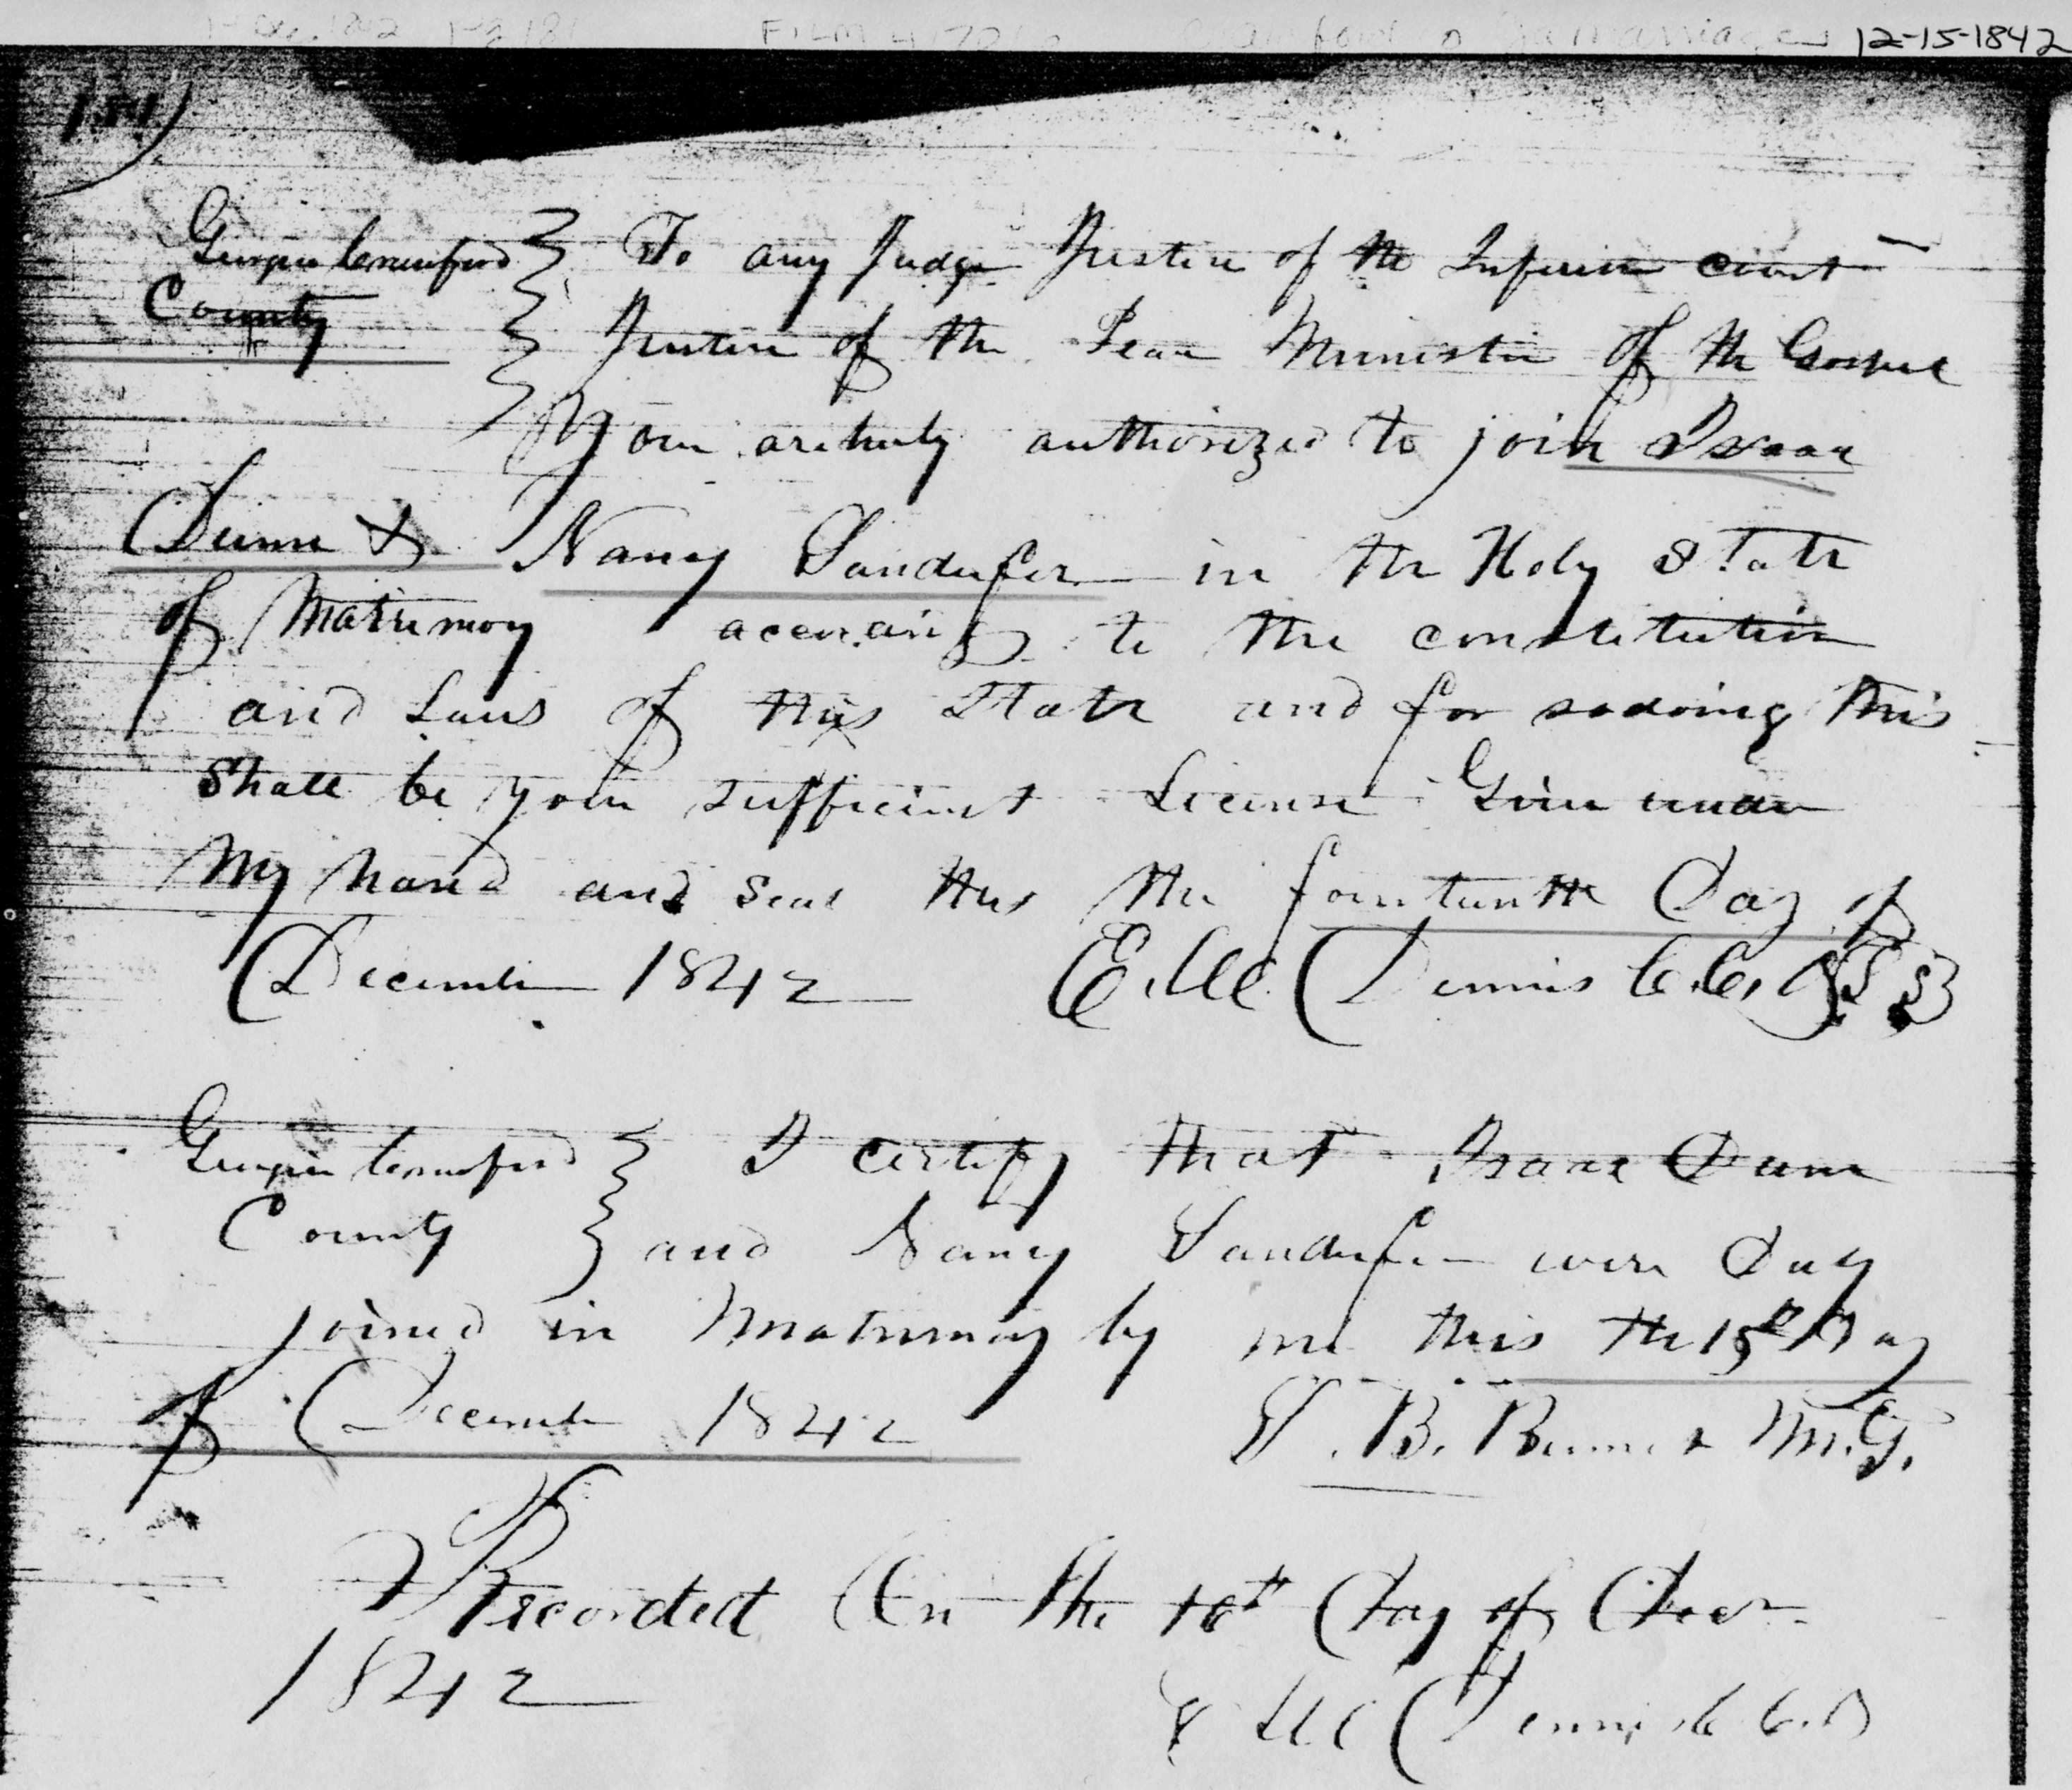 12-15-1842
Georgia Crawford County
To any Judge Justice of the Inferior Court
Justice of the Peace Minister of the Gospel
You are huly authorized to join Isaac
Dunn & Nancy Sandufer in the Holy State
of Matrimony to the constitution
and Laws of this State and for sodoing this
Shall be your sufficient License Given under
My hand and Seal this the fourteenth Day of
December 1842 Dennis C.C.O
Georgia Crawford County
I certify that Isaac Dunn
and Nancy Sandufer were Duly
joined in Matrimony by me this the 15th Day
of December 1842 B. M.G.
Recorded On the Day of Decr
1842
Dennis C.C.O